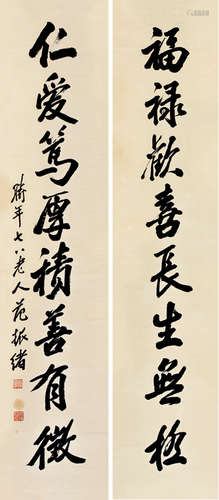 福祿歡喜長生無極
仁愛篤厚積善有徵
時年七八老人范振緒